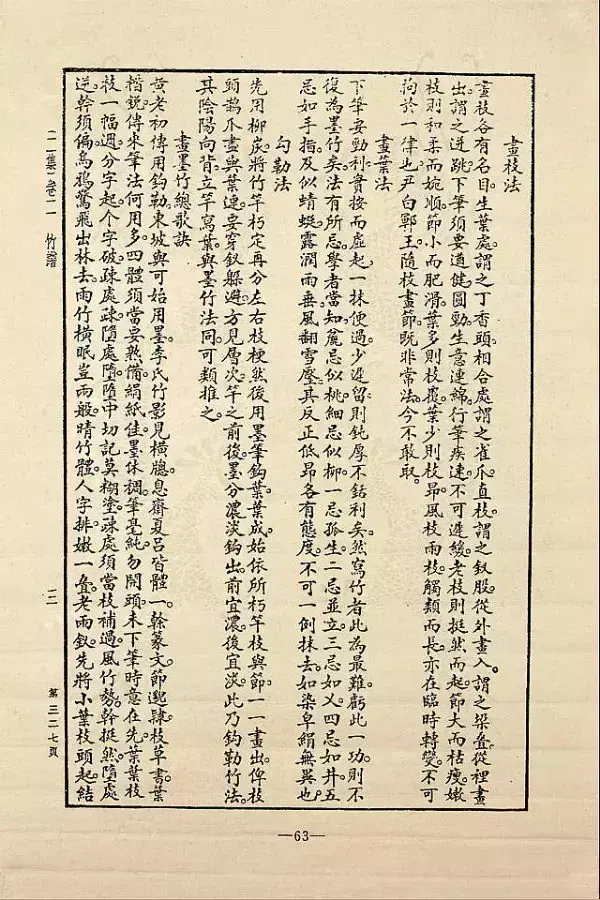 畫枝法
畫枝各有名目。生葉處。謂之丁香頭。相合處。謂之雀爪。直枝。謂之釵股。從外畫入。謂之垜疊。從裡畫
出。謂之迸跳。下筆須要遒健圓勁。生意連綿。行筆疾速。不可遲緩。老枝則挺然而起。節大而枯瘦。嫩
枝則和柔而婉順。節小而肥滑。葉多則枝覆。葉少則枝昂。風枝雨枝。觸類而長。亦在臨時轉變。不可
拘於一律也。尹白鄆王。隨枝畫節。既非常法。今不敢取。
畫葉法
下筆要勁利。實按而虛起。一抹便過。少遲留。則鈍厚不銛利矣。然寫竹者。此為最難。虧此一功。則不
復為墨竹矣。法有所忌。學者當知。麄忌似桃。細忌似柳。一忌孤生。二忌並立。三忌如乂。四忌如井。五
忌如手指。及似蜻蜓。露潤雨垂。風翻雪壓。其反正低昂。各有態度。不可一例抹去。如染皁絹無異也。
勾勒法
先用柳炭。將竹竿朽定。再分左右枝梗。然後用墨筆鈎葉。葉成。始依所朽竿枝與節。一一畫出。俾枝
頭鵲爪。盡與葉連。要穿釵躲避。方見層次。竿之前後。墨分濃淡。鈎出。前宜濃。後宜淡。此乃鈎勒竹法。
其陰陽向背。立竿寫葉。與墨竹法同。可類推之。
畫墨竹總歌訣
黄老初傳用鈎勒。東坡與可始用墨。李氏竹影見橫牎。息齋夏呂皆體一。幹篆文。節邈隸。枝草書。葉
楷銳。傳來筆法何用多。四體須當要熟備。絹紙佳。墨休稠。筆毫純。勿開頭。未下筆時意在先。葉葉枝
枝一幅週。分字起。个字破。疎處疎。墮處墮。墮中切記莫糊塗。疎處須當枝補過。風竹勢。幹挺然。墮處
逆幹須偏。烏鴉驚飛出林去。雨竹橫眠豈兩般。晴竹體。人字排。嫩一疊。老兩釵。先將小葉枝頭起。結
二集 卷二 竹譜
二
第三二七頁
—63—